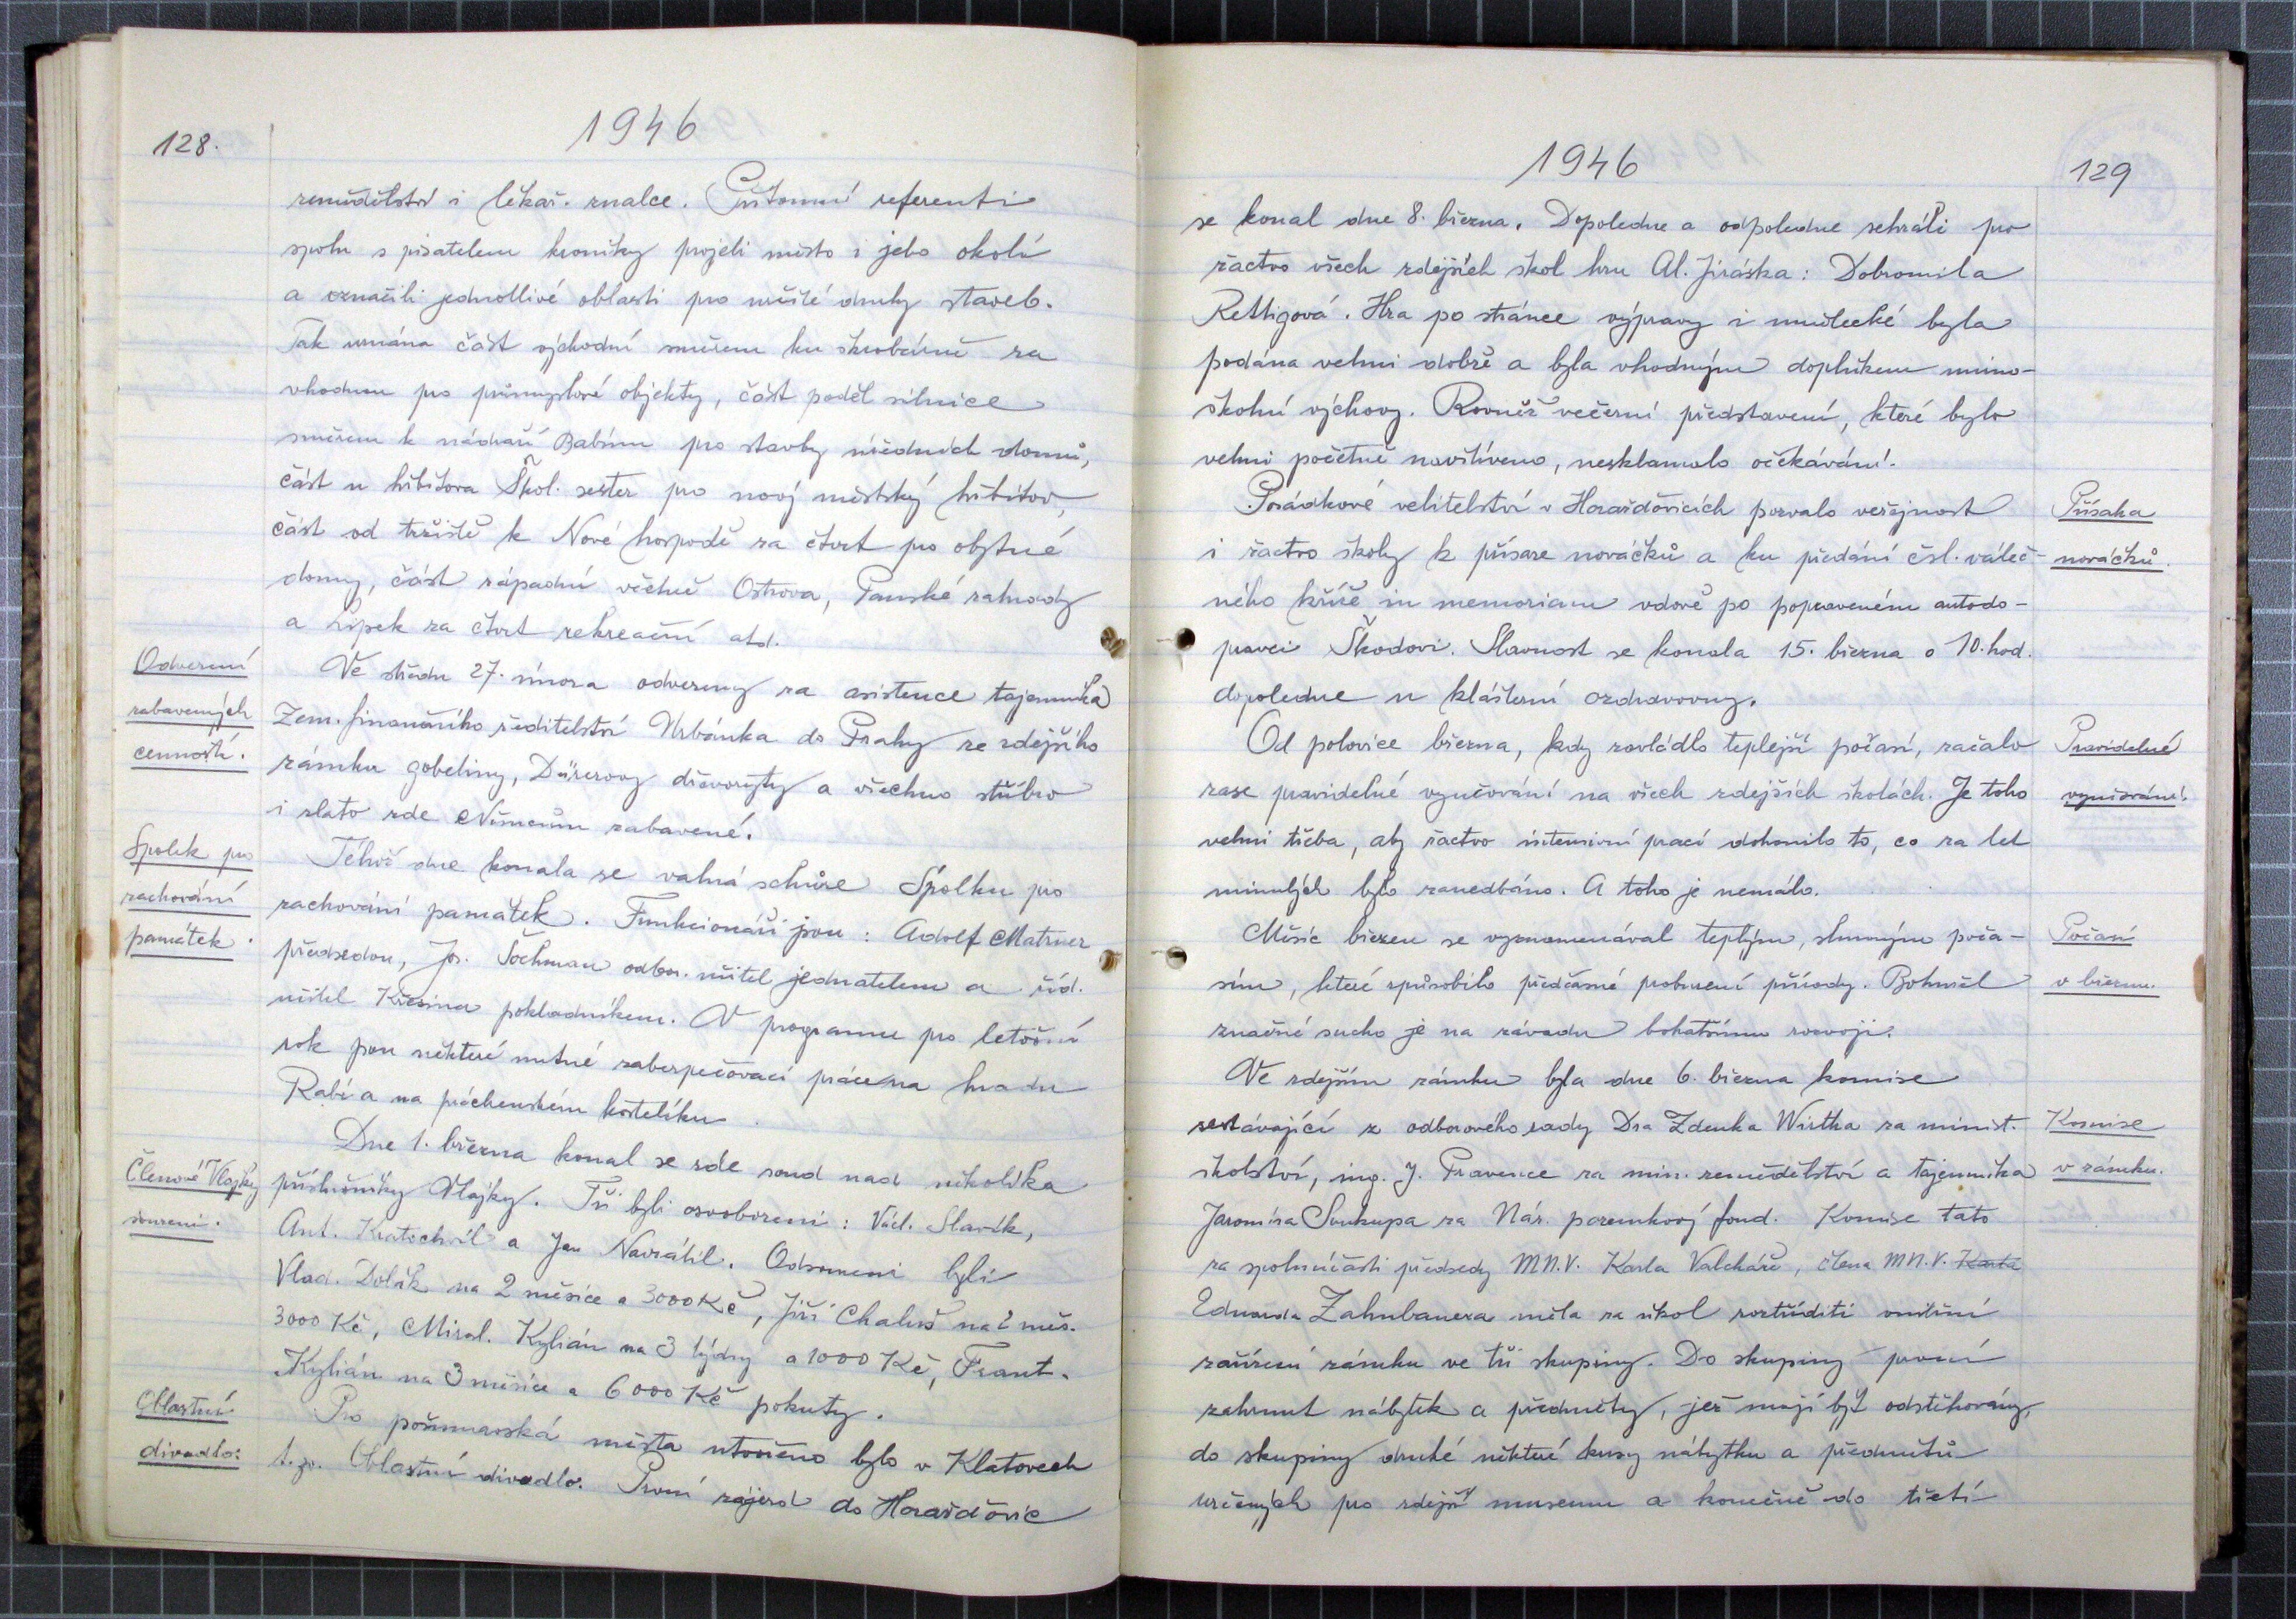 128.
1946
zemědělství i lékař. znalce. Přítomní referenti
spolu s pisatelem kroniky projeli město i jeho okolí
a označili jednotlivé oblasti pro určité druhy staveb.
Tak uznána část východní směrem ku škrobárně za
vhodnou pro průmyslové objekty, část podél silnice
směrem k nádraží Babínu pro stavby úředních domů,
část u hřbitova Škol. sester pro nový městský hřbitov,
část od tržiště k Nové hospodě za čtvrt pro obytné
domy, část západní včetně Ostrova, Panské zahrady
a Lipek za čtvrt rekreační atd.
Odvezení
zabavených
cenností.
Ve středu 27. února odvezeny za asistence tajemníka
Zem. finančního ředitelství Urbánka do Prahy ze zdejšího
zámku gobeliny, Dürerovy dřevoryty a všechno stříbro
i zlato zde Němcům zabavené.
Spolek pro
zachování
památek.
Téhož dne konala se valná schůze Spolku pro
zachování památek. Funkcionáři jsou: Adolf Matzner
předsedou, Jos. Sochman odbor. učitel jednatelem a říd.
učitel Křesina pokladníkem. V programu pro letošní
rok jsou některé nutné zabezpečovací práce na hradu
Rabí a na práchenském kostelíku.
Členové Vlajky
souzeni.
Dne 1. března konal se zde soud nad několika
příslušníky Vlajky. Tři byli osvobozeni: Václ. Slavík,
Ant. Kratochvíl a Jan Navrátil. Odsouzeni byli
Vlad. Dolák na 2 měsíce a 3000 Kč, Jiří Chaluš na 2 měs.
3000 Kč, Mirosl. Kylián na 3 týdny a 1000 Kč, Frant.
Kylián na 3 měsíce a 6000 Kč pokuty.
Oblastní
divadlo.
Pro pošumavská města utvořeno bylo v Klatovech
t. zv. Oblastní divadlo. První zájezd do Horažďovic
1946
129
se konal dne 8. března. Dopoledne a odpoledne sehráli pro
žactvo všech zdejších škol hru Al. Jiráska: Dobromila
Rettigová. Hra po stránce výpravy i umělecké byla
podána velmi dobře a byla vhodným doplňkem mimo-
školní výchovy. Rovněž večerní představení, které bylo
velmi početně navštíveno, nesklamalo očekávání.
Přísaha
nováčků.
Posádkové velitelství v Horažďovicích pozvalo veřejnost
i žactvo školy k přísaze nováčků a ku předání čsl. váleč-
ného kříže in memoriam vdově po popraveném autodo-
pravci Škodovi. Slavnost se konala 15. března o 10. hod.
dopoledne u klášterní ozdravovny.
Pravidelné
vyučování.
Od polovice března, kdy zavládlo teplejší počasí, začalo
zase pravidelné vyučování na všech zdejších školách. Je toho
velmi třeba, aby žactvo intensivní prací dohonilo to, co za let
minulých bylo zanedbáno. A toho je nemálo.
Počasí
v březnu.
Měsíc březen se vyznamenával teplým, slunným poča-
sím, které způsobilo předčasné probuzení přírody. Bohužel
značné sucho je na závadu bohatšímu rozvoji.
Komise
v zámku.
Ve zdejším zámku byla dne 6. března komise
sestávající z odborového rady Dra Zdenka Wirtha za minist.
školství, ing. J. Pravence za min. zemědělství a tajemníka
Jaromíra Soukupa za Nár. pozemkový fond. Komise tato
za spoluúčasti předsedy MN.V. Karla Valcháře, člena MN.V. Karla
Eduarda Zahnbauera měla za úkol roztříditi vnitřní
zařízení zámku ve tři skupiny. Do skupiny první
zahrnut nábytek a předměty, jež mají být odstěhovány,
do skupiny druhé některé kusy nábytku a předmětů
určených pro zdejší museum a konečně do třetí